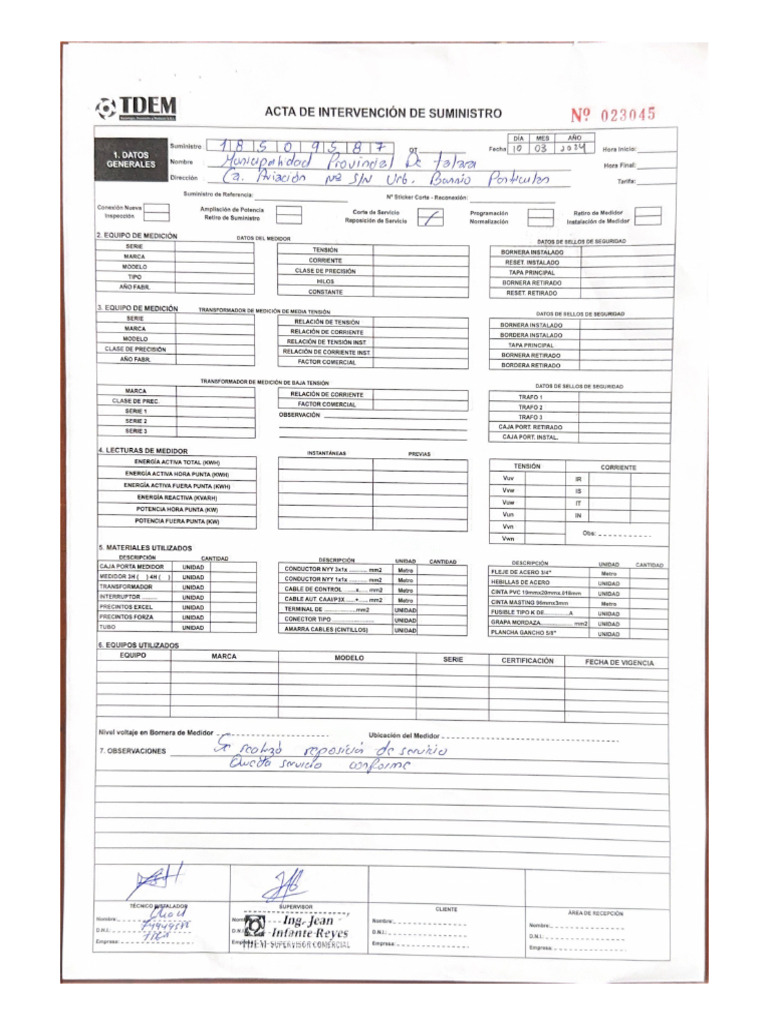 TDEM
ACTA DE INTERVENCIÓN DE SUMINISTRO
Nº 023045
1. DATOS GENERALES
Suministro 1 8 5 0 9 5 8 7
Fecha
DÍA MES AÑO
10 03 2024
Hora Inicio:
Nombre Municipalidad Provincial De Talara
Hora Final:
Dirección Ca. Aviación Nº S/N Urb. Barrio Particular
Tarifa:
Suministro de Referencia:
Nº Sticker Corte - Reconexión:
Conexión Nueva
Inspección
Ampliación de Potencia
Retiro de Suministro
Corte de Servicio
Reposición de Servicio
Programación
Normalización
Retiro de Medidor
Instalación de Medidor
2. EQUIPO DE MEDICIÓN
DATOS DEL MEDIDOR
DATOS DE SELLOS DE SEGURIDAD
SERIE
MARCA
MODELO
TIPO
AÑO FABR.
TENSIÓN
CORRIENTE
CLASE DE PRECISIÓN
HILOS
CONSTANTE
BORNERA INSTALADO
RESET. INSTALADO
TAPA PRINCIPAL
BORNERA RETIRADO
RESET. RETIRADO
3. EQUIPO DE MEDICIÓN
TRANSFORMADOR DE MEDICIÓN DE MEDIA TENSIÓN
DATOS DE SELLOS DE SEGURIDAD
SERIE
MARCA
MODELO
CLASE DE PRECISIÓN
AÑO FABR.
RELACIÓN DE TENSIÓN
RELACIÓN DE CORRIENTE
RELACIÓN DE TENSIÓN INST
RELACIÓN DE CORRIENTE INST
FACTOR COMERCIAL
BORNERA INSTALADO
BORDERA INSTALADO
TAPA PRINCIPAL
BORNERA RETIRADO
BORDERA RETIRADO
TRANSFORMADOR DE MEDICIÓN DE BAJA TENSIÓN
DATOS DE SELLOS DE SEGURIDAD
MARCA
CLASE DE PREC.
SERIE 1
SERIE 2
SERIE 3
RELACIÓN DE CORRIENTE
FACTOR COMERCIAL
OBSERVACIÓN
TRAFO 1
TRAFO 2
TRAFO 3
CAJA PORT. RETIRADO
CAJA PORT. INSTAL.
4. LECTURAS DE MEDIDOR
INSTANTÁNEAS
PREVIAS
ENERGÍA ACTIVA TOTAL (KWH)
ENERGÍA ACTIVA HORA PUNTA (KWH)
ENERGÍA ACTIVA FUERA PUNTA (KWH)
ENERGÍA REACTIVA (KVARH)
POTENCIA HORA PUNTA (KW)
POTENCIA FUERA PUNTA (KW)
TENSIÓN CORRIENTE
Vuv IR
Vvw IS
Vuw IT
Vun IN
Vvn
Vwn
Obs:
5. MATERIALES UTILIZADOS
DESCRIPCIÓN CANTIDAD
CAJA PORTA MEDIDOR UNIDAD
MEDIDOR 3H ( ) 4H ( ) UNIDAD
TRANSFORMADOR UNIDAD
INTERRUPTOR .......... UNIDAD
PRECINTOS EXCEL UNIDAD
PRECINTOS FORZA UNIDAD
TUBO UNIDAD
DESCRIPCIÓN UNIDAD CANTIDAD
CONDUCTOR NYY 3x1x .......... mm2 Metro
CONDUCTOR NYY 1x1x .......... mm2 Metro
CABLE DE CONTROL ......x...... mm2 Metro
CABLE AUT. CAAI/P3X......+...... mm2 Metro
TERMINAL DE ....................mm2 UNIDAD
CONECTOR TIPO .................... UNIDAD
AMARRA CABLES (CINTILLOS) UNIDAD
DESCRIPCIÓN UNIDAD CANTIDAD
FLEJE DE ACERO 3/4" Metro
HEBILLAS DE ACERO UNIDAD
CINTA PVC 19mmx20mmx.018mm UNIDAD
CINTA MASTING 56mmx3mm Metro
FUSIBLE TIPO K DE..............A UNIDAD
GRAPA MORDAZA.................... mm2 UNIDAD
PLANCHA GANCHO 5/8" UNIDAD
6. EQUIPOS UTILIZADOS
EQUIPO MARCA MODELO SERIE CERTIFICACIÓN FECHA DE VIGENCIA
Nivel voltaje en Bornera de Medidor
Ubicación del Medidor
7. OBSERVACIONES Se realizó reposición de servicio
Queda servicio conforme
TÉCNICO INSTALADOR
Nombre:
D.N.I.:
Empresa:
SUPERVISOR
Ing. Jean
Infante Reyes
TDEM-SUPERVISOR COMERCIAL
CLIENTE
Nombre:
D.N.I.:
Empresa:
ÁREA DE RECEPCIÓN
Nombre:
D.N.I.:
Empresa: